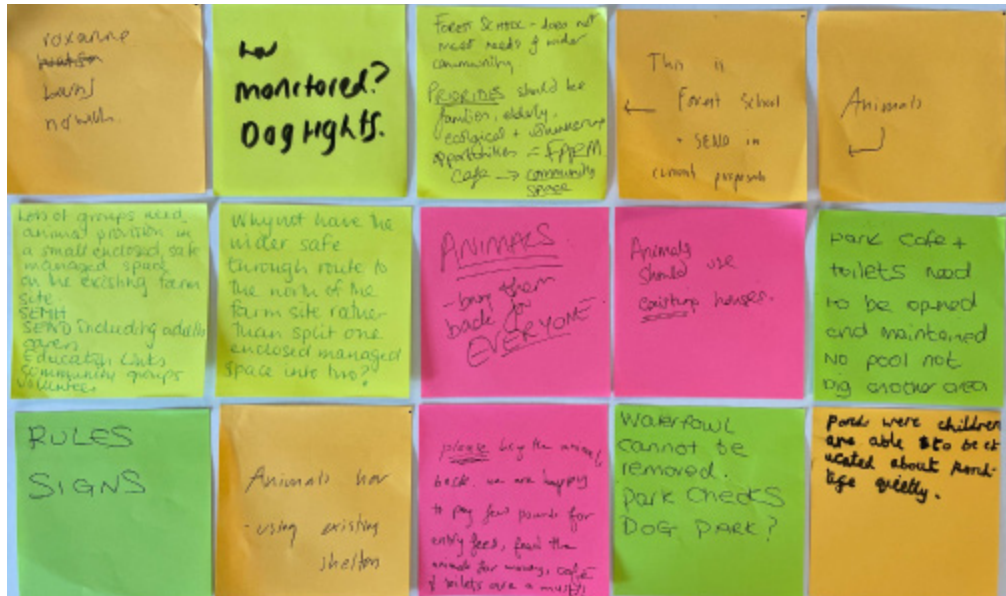 roxanne
how
monitored?
Dog rights.
FOREST SCHOOL - does not
meet needs of wider
community
PRIORIDES should be
families, elderly,
ecological + volunteering
opportunities = FARM
cafe → community
space
This is
← Forest School
+ SEND in
current proposals
Animals
Lots of groups need
animal provision in
a small enclosed, safe
managed space
on the existing farm
site.
SEMH
SEND including adults
carers
Education Links
Community groups
Volunteer
Why not have the
wider safe
through route to
the north of the
farm site rather
than split one
enclosed managed
space into two?
ANIMALS
- bring them
back for
EVERYONE
Animals
should use
existing houses.
park cafe +
toilets need
to be opened
and maintained
No pool not
big enough area
RULES
SIGNS
Animals her
- using existing
shelter
please bring the animals
back. we are happy
to pay few pounds for
entry fees, feed the
animals for money, cafe
& toilets are a must!
Waterfowl
cannot be
removed.
Park Checks
DOG PARK?
Pond were children
are able to be ed
ucated about pond-
life quietly.